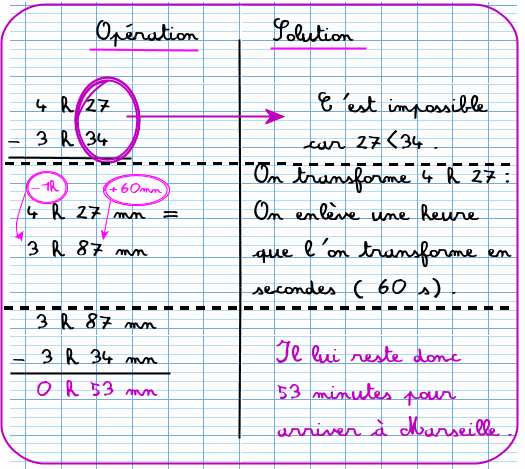 Opération
Solution
4 h 27
- 3 h 34
C'est impossible
car 27 < 34 .
- 1h
+ 60mn
4 h 27 mn =
3 h 87 mn
On transforme 4 h 27 :
On enlève une heure
que l'on transforme en
secondes ( 60 s) .
3 h 87 mn
- 3 h 34 mn
0 h 53 mn
Il lui reste donc
53 minutes pour
arriver à Marseille .